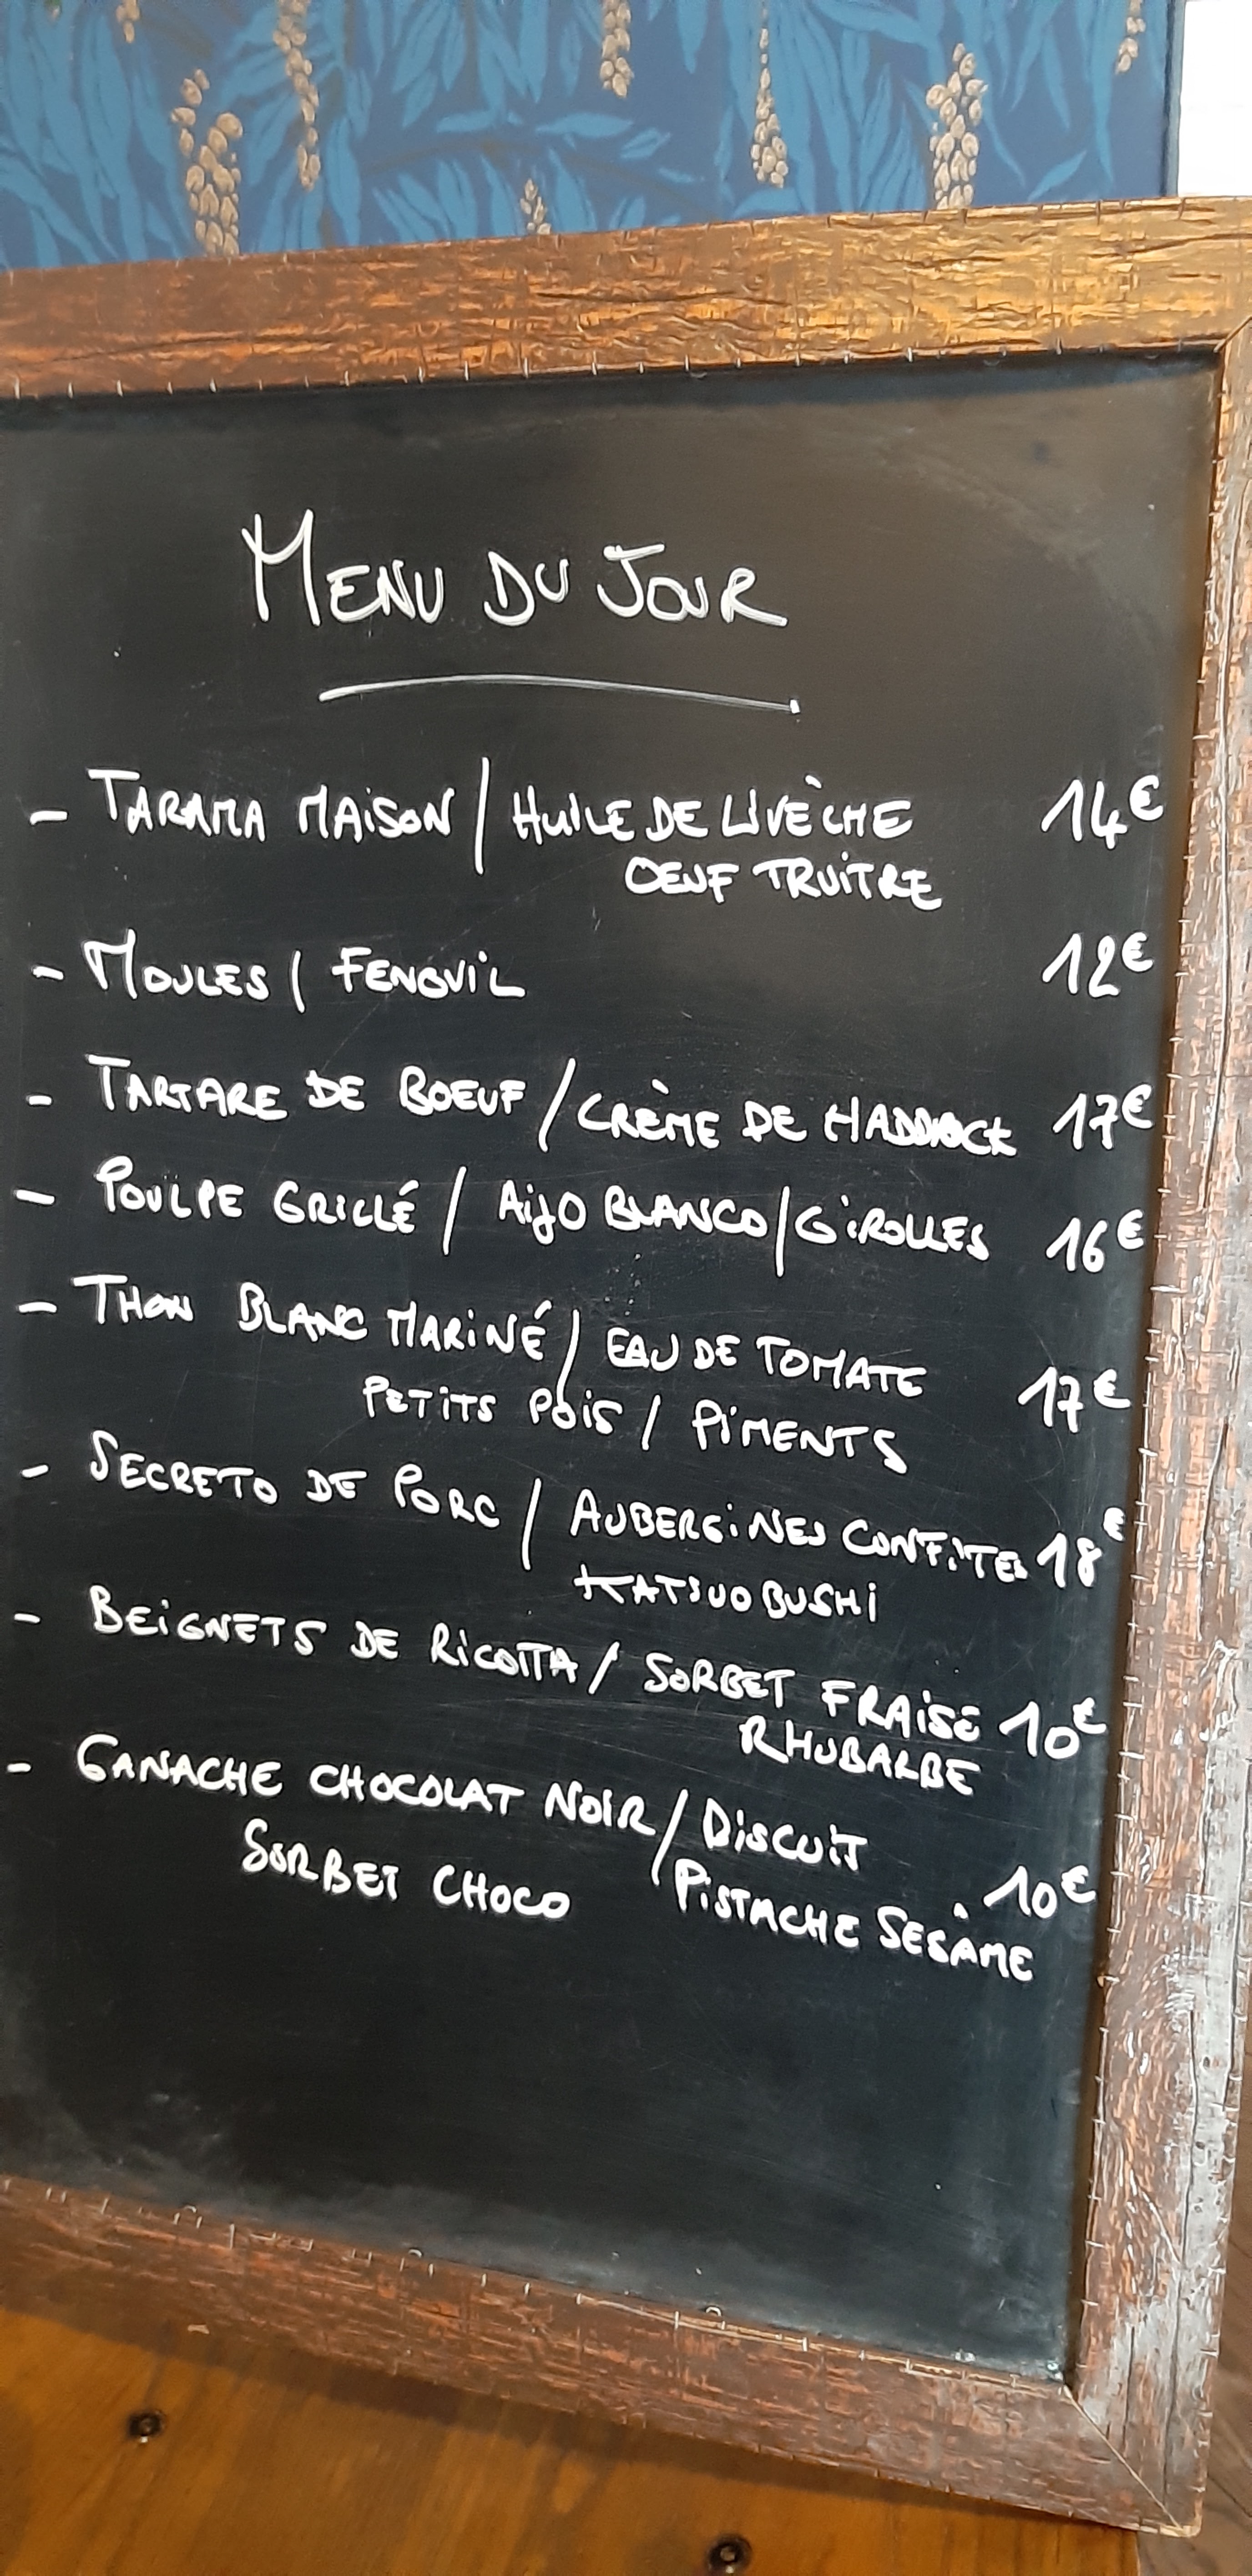 MENU DU JOUR
- TARAMA MAISON / HUILE DE LIVÈCHE 14€
OEUF TRUITRE
- MOULES / FENOUIL 12€
- TARTARE DE BOEUF / CRÈME DE HADDOCK 17€
- POULPE GRILLÉ / AIJO BLANCO / GIROLLES 16€
- THON BLANC MARINÉ / EAU DE TOMATE 17€
PETITS POIS / PIMENTS
- SECRETO DE PORC / AUBERGINES CONFITES 18€
KATSUOBUSHI
- BEIGNETS DE RICOTTA / SORBET FRAISE 10€
RHUBALBE
- GANACHE CHOCOLAT NOIR / BISCUIT 10€
SORBET CHOCO PISTACHE SESAME